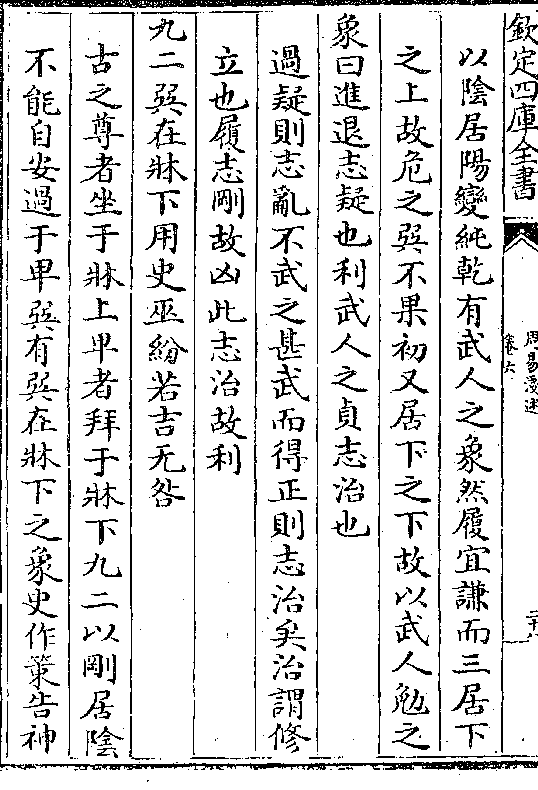 欽定四庫全書
周易淺述
卷六
以陰居陽變純乾有武人之象然履宜謙而三居下
之上故危之巽不果初又居下之下故以武人勉之
象曰進退志疑也利武人之貞志治也
過疑則志亂不武之甚武而得正則志治矣治謂修
立也履志剛故凶此志治故利
九二巽在牀下用史巫紛若吉无咎
古之尊者坐于牀上卑者拜于牀下九二以剛居陰
不能自安過于卑巽有巽在牀下之象史作策告神